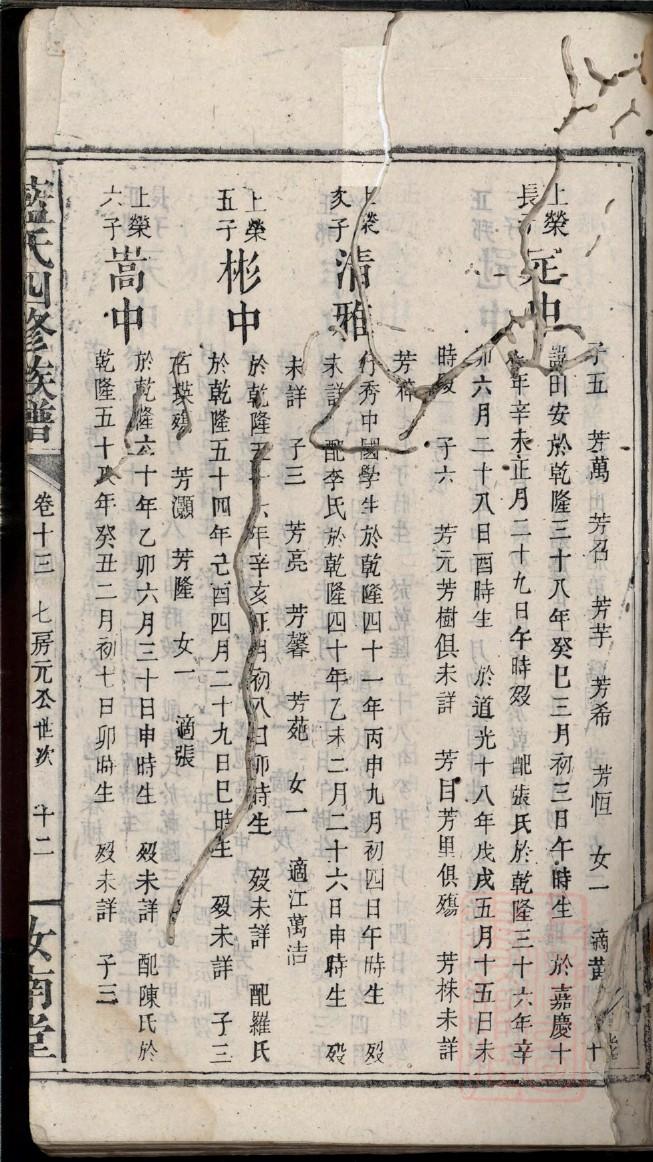 子五 芳萬 芳召 芳芋 芳希 芳恒 女一 適黃
上榮長子 定中 諱田安於乾隆三十八年癸巳三月初三日午時生 於嘉慶十
年辛未正月二十九日午時歿 配張氏於乾隆三十六年辛
卯六月二十八日酉時生 於道光十八年戊戌五月十五日未
時歿 子六 芳元芳樹俱未詳 芳目芳里俱殤 芳株未詳
芳
上榮次子 清雅 行秀中國學生於乾隆四十一年丙申九月初四日午時生 歿
未詳 配李氏於乾隆四十年乙未二月二十六日申時生 歿
未詳 子三 芳亮 芳馨 芳苑 女一 適江萬洁
上榮五子 彬中 於乾隆五十六年辛亥正月初八日卯時生 歿未詳 配羅氏
於乾隆五十四年己酉四月二十九日巳時生 歿未詳 子三
石瑛殤 芳灝 芳隆 女一 適張
上榮六子 嵩中 於乾隆六十年乙卯六月三十日申時生 歿未詳 配陳氏於
乾隆五十八年癸丑二月初七日卯時生 歿未詳 子三
藍氏四修族譜 卷十三 七房元公世次 十二 汝南堂